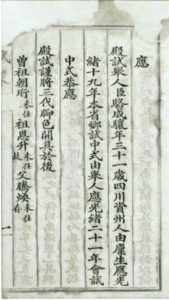 應
殿試舉人臣駱成驤年三十一歲四川資州人由廩生應光
緒十九年本省鄉試中式由舉人應光緒二十一年會試
中式恭應
殿試謹將三代脚色開具於後
曾祖朝珩未仕故 祖恩升未仕故 父騰煥未仕存
一